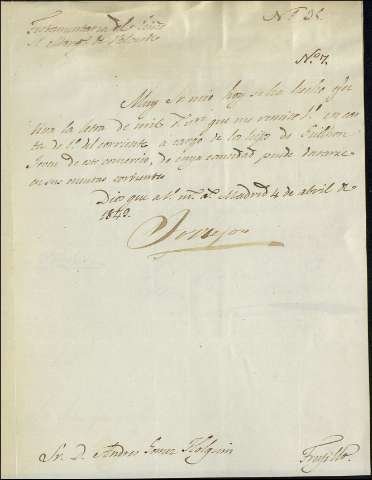 Testamentaria del
Nº 7.
Muy Sr. mio hoy se ha hecho efec
tiva la letra de mil rs. que me remite V. en car
ta de 1º del corriente a cargo de los hijos de Guillen
de este comercio, de cuya cantidad puede datarse
en sus cuentas corrientes
Dios gue a V. ms. as. Madrid 4 de abril de
1842.
Sr. D. Andres Gomez Holguin
Trujillo.